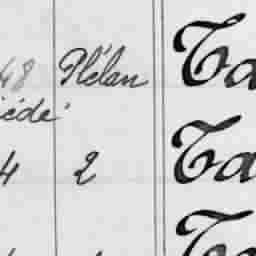 48 Plélan Ta
cédé
4 2 Ta
Ta